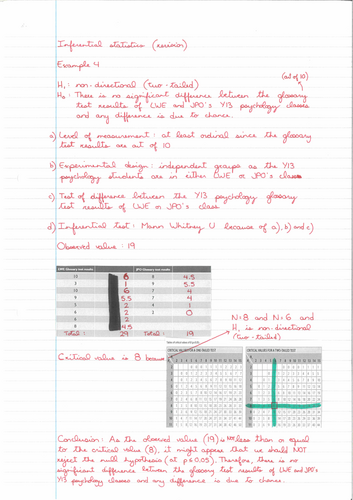 Inferential statistics (revision)
Example 4
(out of 10)
H₁: non-directional (two-tailed)
H₀: There is no significant difference between the glossary
test results of LWE and JPO's Y13 psychology classes
and any difference is due to chance.
a) Level of measurement: at least ordinal since the glossary
test results are out of 10
b) Experimental design: independent groups as the Y13
psychology students are in either LWE or JPO's class
c) Test of difference between the Y13 psychology glossary
test results of LWE or JPO's class
d) Inferential test: Mann Whitney U because of a), b) and c)
Observed value: 19
LWE Glossary test results JPO Glossary test results
8 4.5
1 5.5
6 4
5.5 4
2 1
2 0
2
4.5
Total: 29 Total: 19
N=8 and N=6 and
H₁ is non-directional
(two-tailed)
Critical value is 8 because
CRITICAL VALUES FOR A TWO-TAILED TEST
CRITICAL VALUES FOR A TWO-TAILED TEST
Conclusion: As the observed value (19) is NOT less than or equal
to the critical value (8), it might appear that we should NOT
reject the null hypothesis (at p≤0.05). Therefore, there is no
significant difference between the glossary test results of LWE and JPO's
Y13 psychology classes and any difference is due to chance.